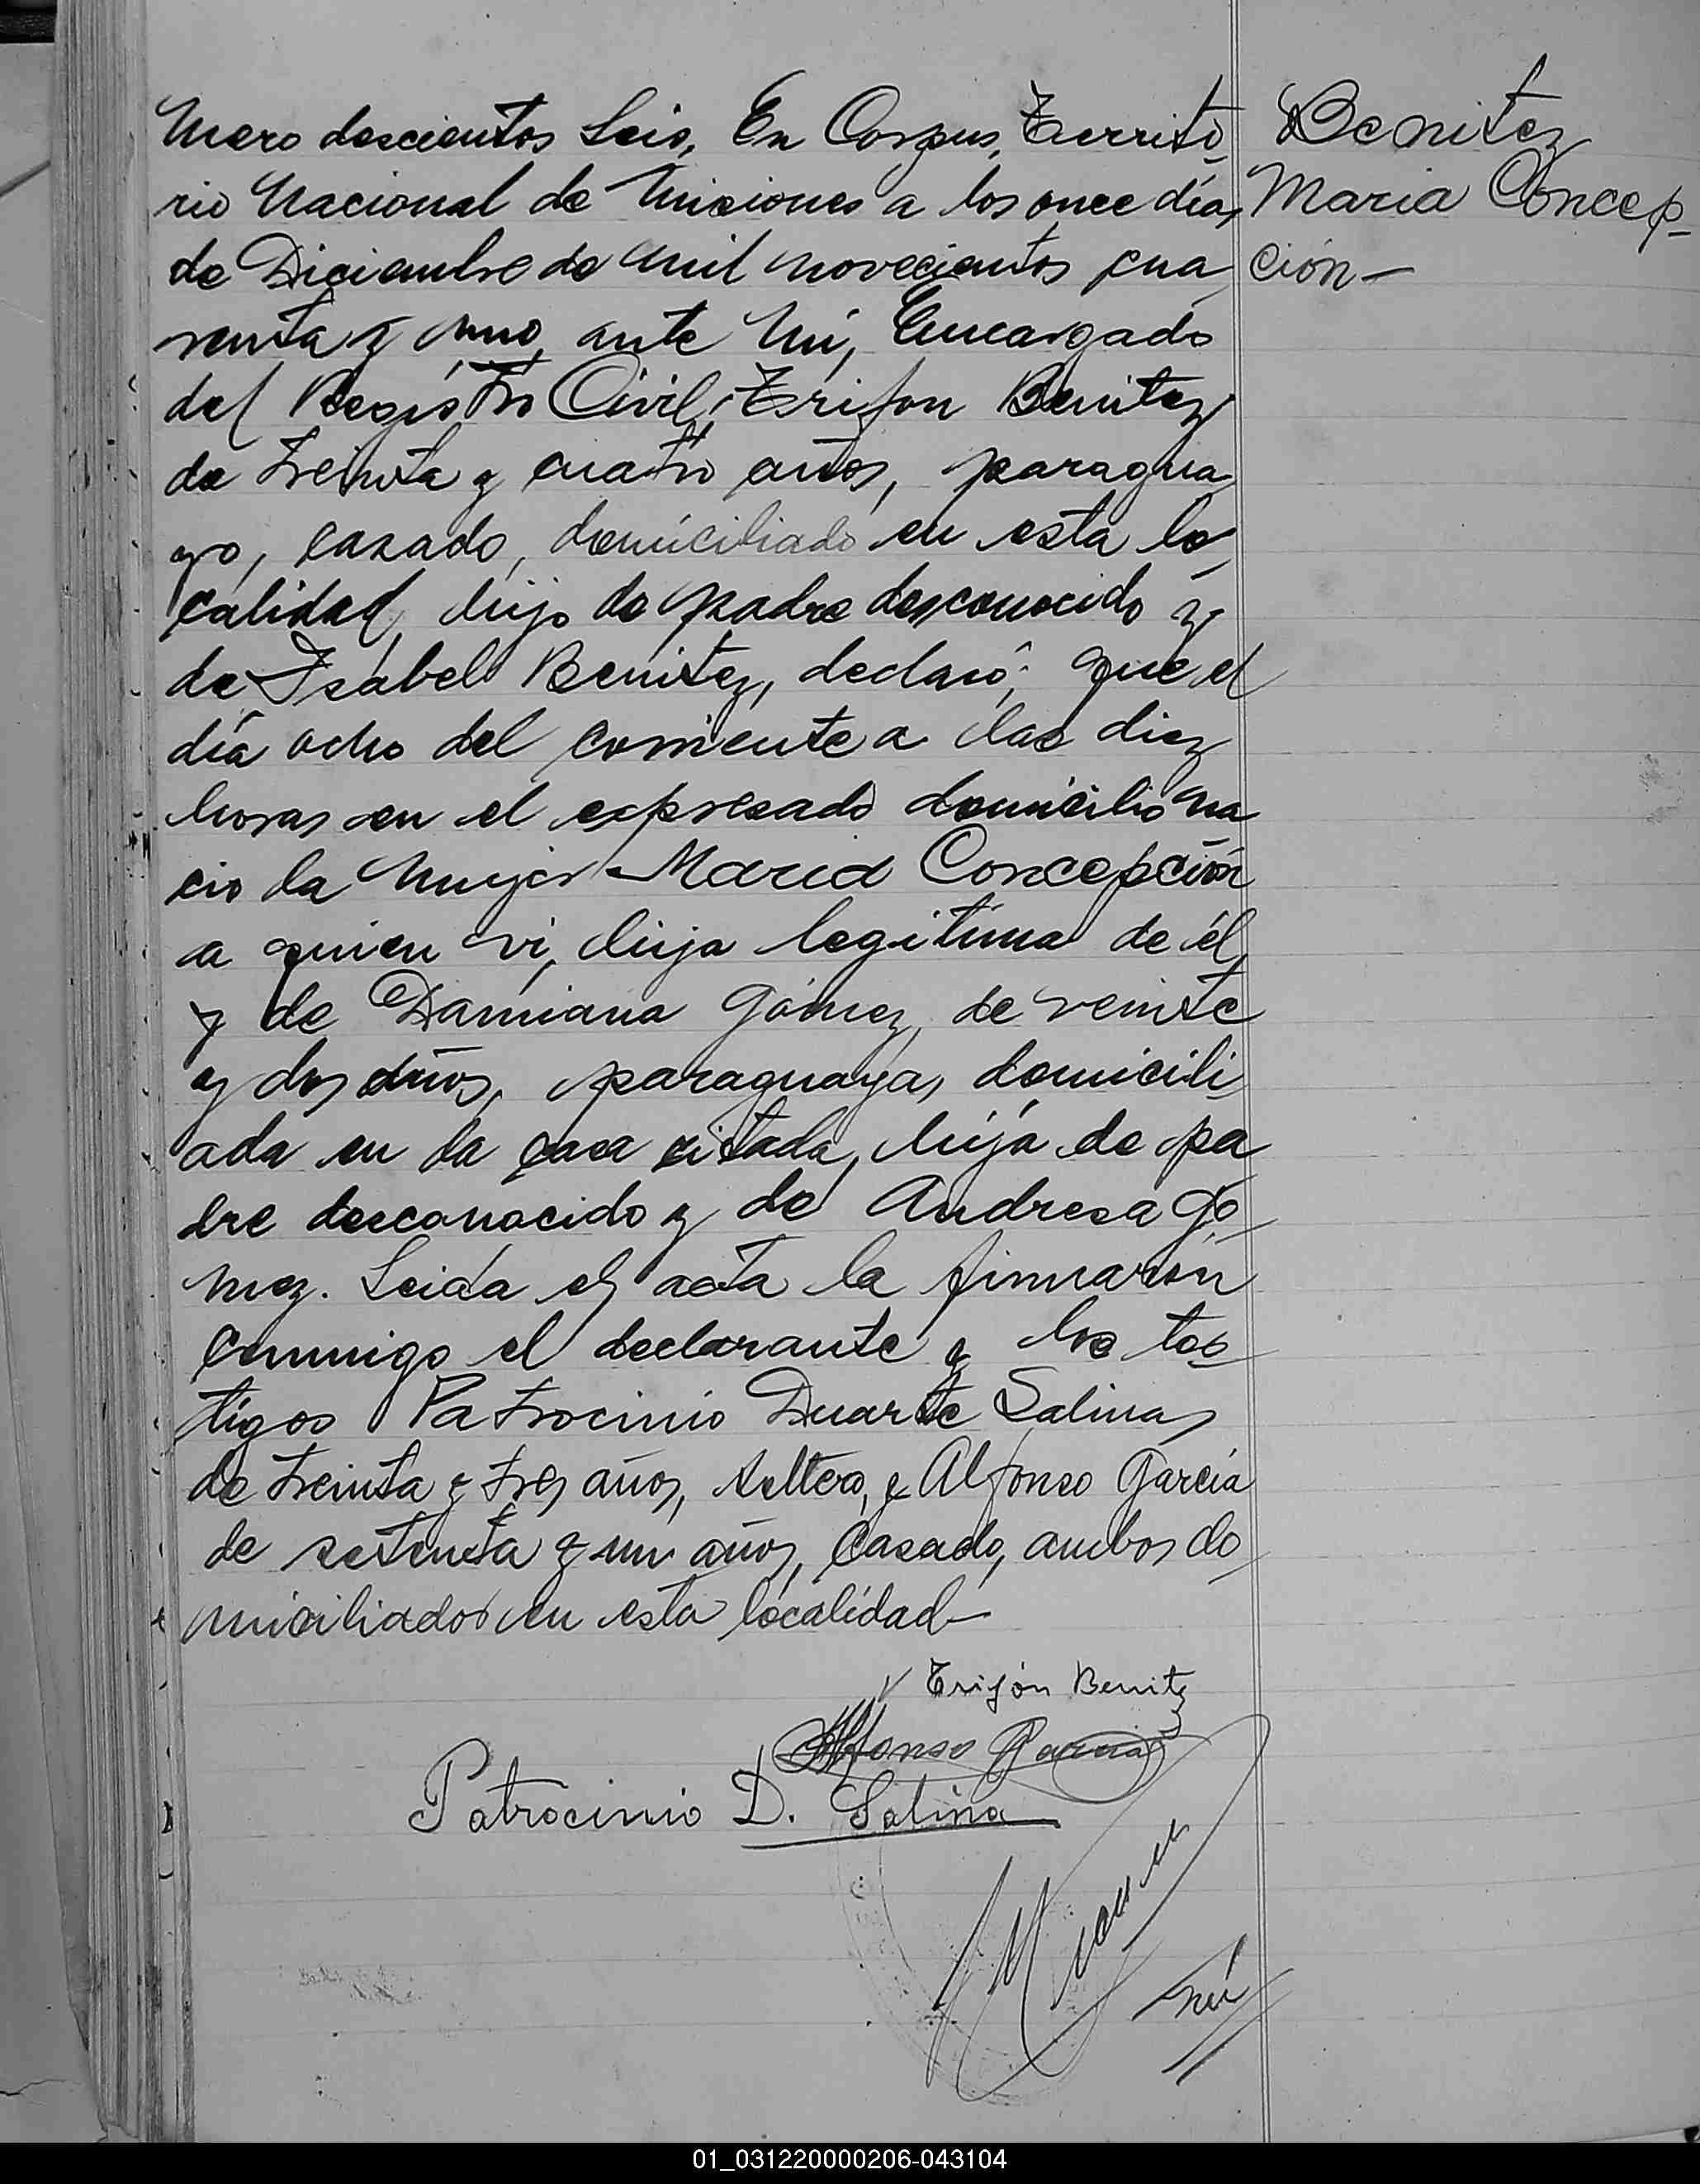 Mero doscientos Seis, En Corpus, Territo
rio Nacional de Misiones a los once días
de Diciembre de mil novecientos cua
renta y uno, ante mí, Encargado
del Registro Civil, Trifon Benitez
de treinta y cuatro años, paragua
yo, casado, domiciliado en esta lo
calidad, hijo de padre desconocido y
de Isabel Benitez, declaró; que el
día ocho del corriente a las diez
horas en el expresado domicilio na
cio la mujer Maria Concepción
a quien vi, hija legítima de él,
y de Damiana Gómez, de veinte
y dos años, paraguaya, domicili
ada en la casa citada, hija de pa
dre desconocido y de Andresa Go
mez. Leida el acta la firmaron
conmigo el declarante y los tes
tigos Patrocinio Duarte Salinas
de treinta y tres años, soltero, y Alfonso García
de setenta y un años, casado, ambos do
miciliados en esta localidad—
Trifón Benitez
Alfonso Garcia
Patrocinio D. Salina
Benitez
Maria Concep-
ción—
01_031220000206-043104